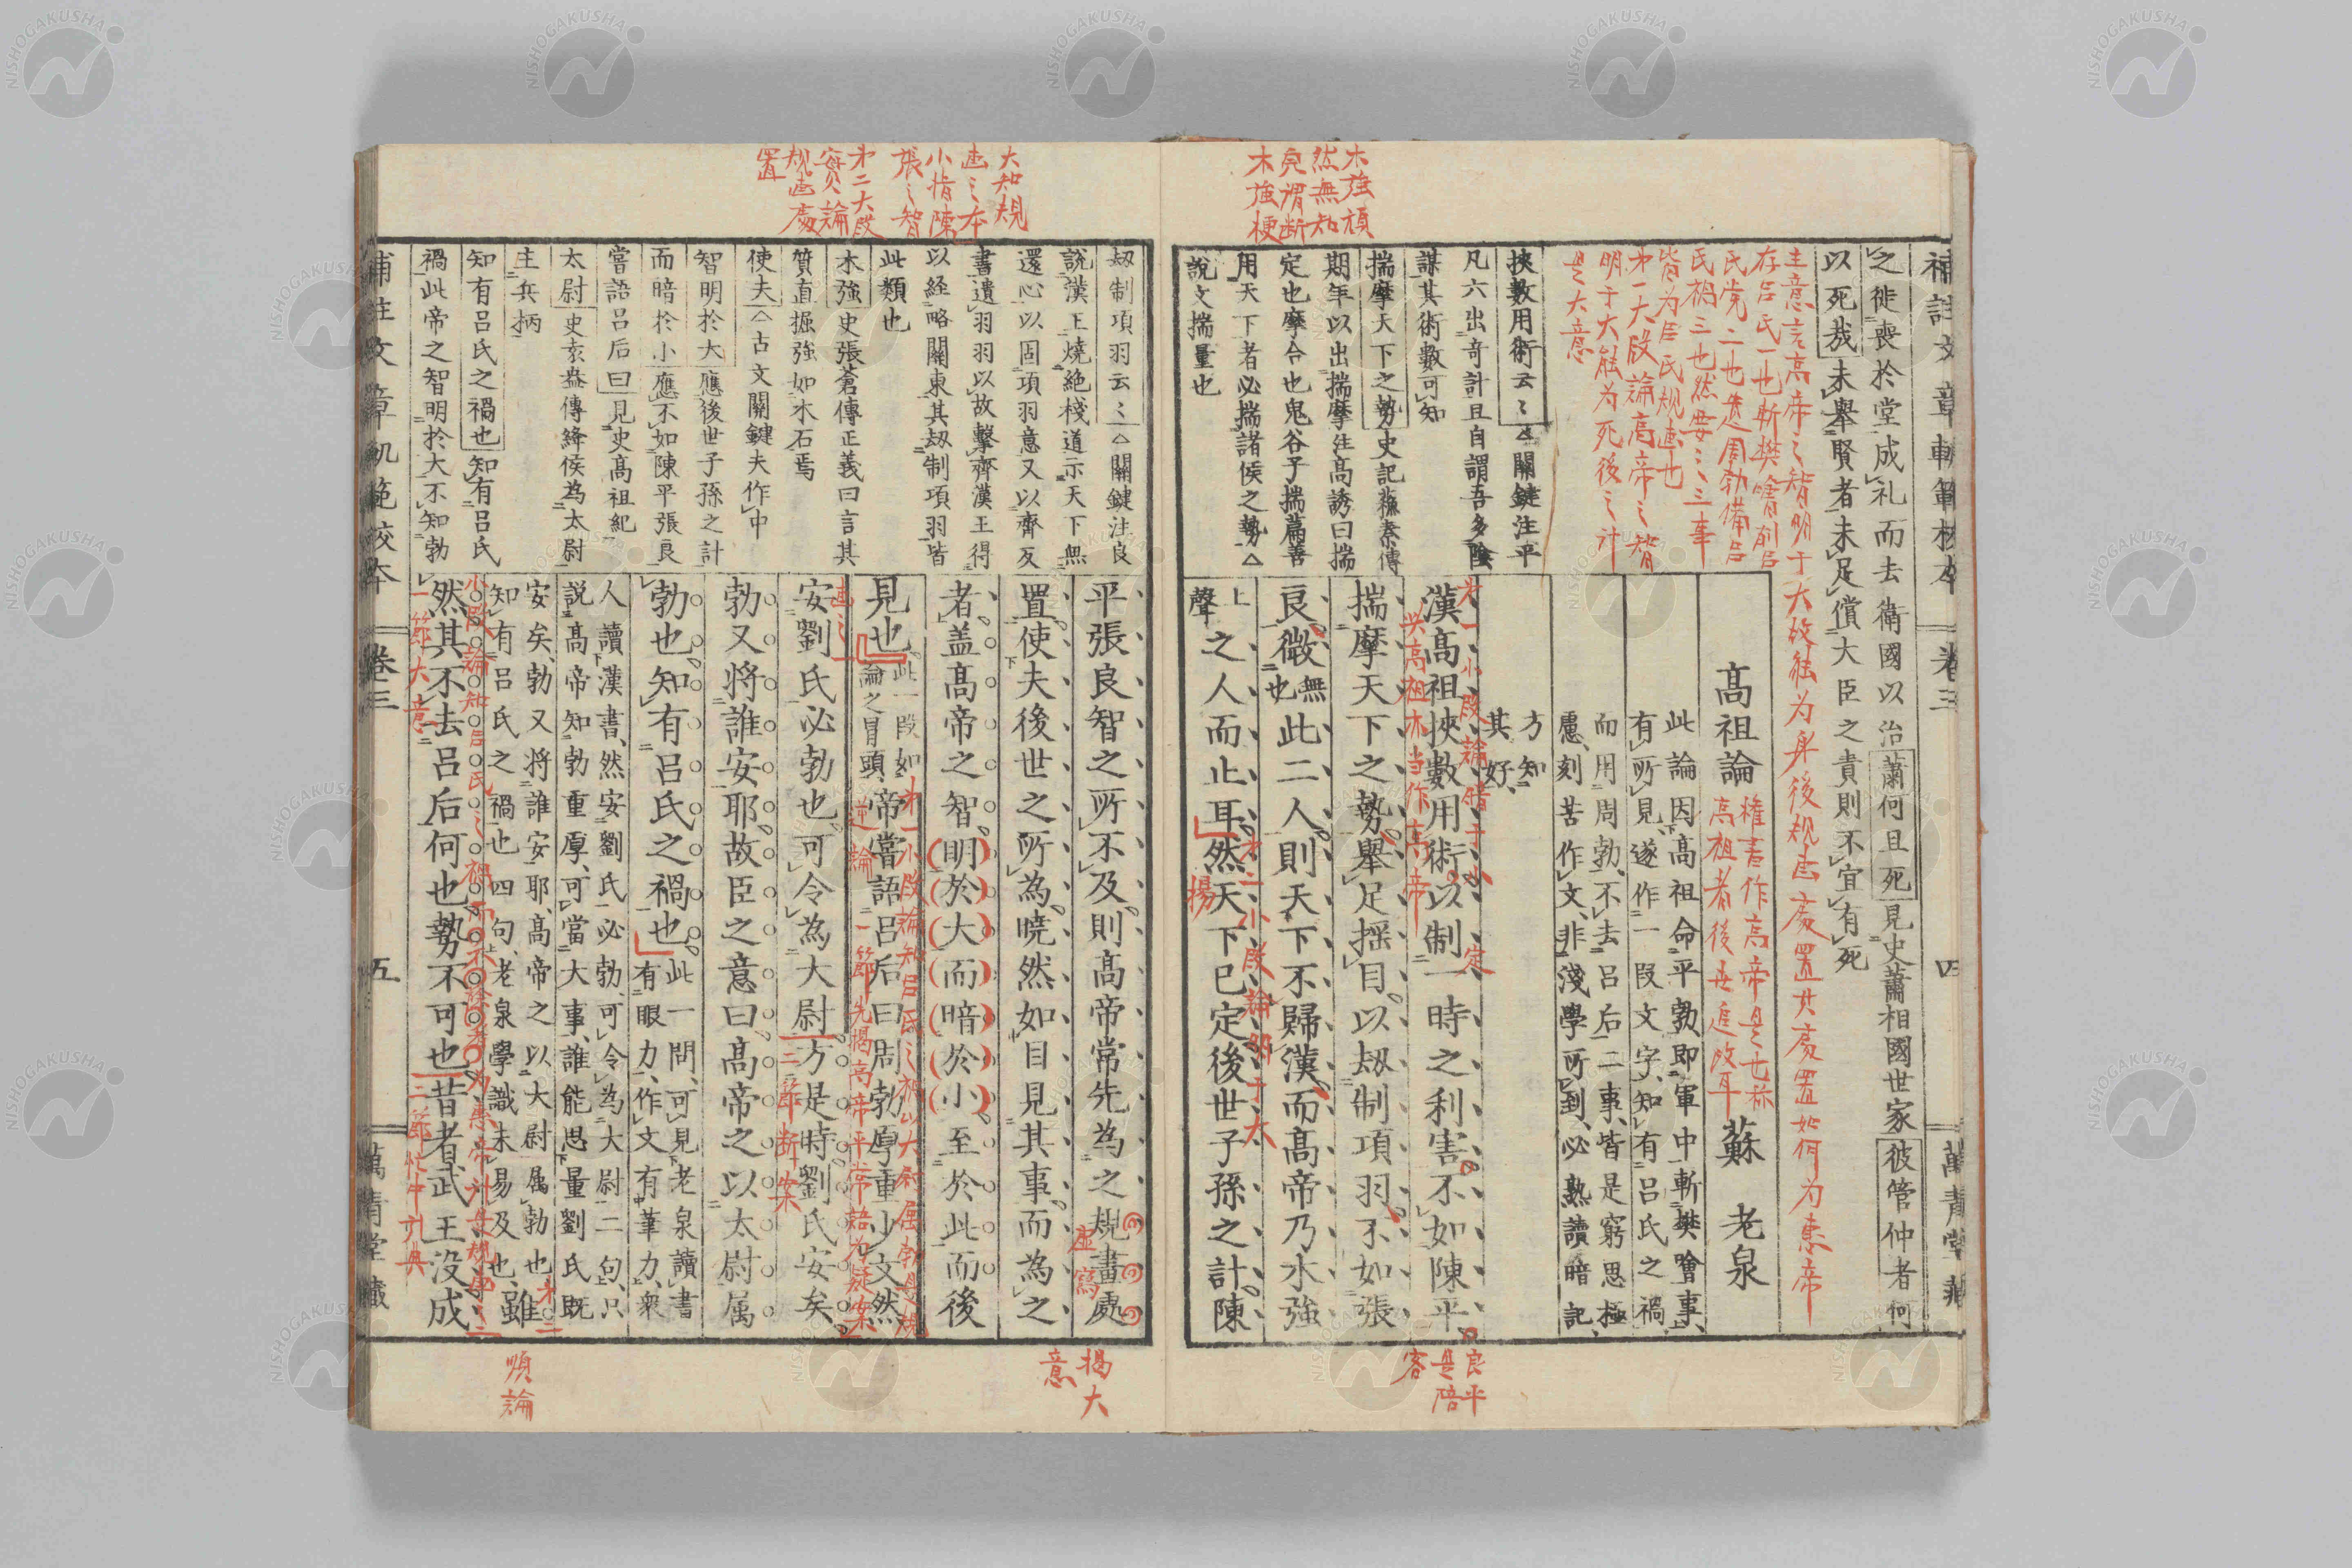 補註文章軌範校本 卷三 四 萬青堂藏
之徙喪於堂成礼而去衛國以治蕭何且死見史蕭相國世家彼管仲者何
以死哉未舉賢者未足償大臣之責則不宜有死
主意言高帝之智明于大故能为身後规画處置其處置如何为惠帝
存吕氏一也斬樊噲削吕
氏党二也遺周勃備吕
氏禍三也然要之三事
皆为吕氏规画也
才一大段論高帝之智
明于大能为死後之计
是大意
高祖論 蘇老泉
權書作高帝是也称
高祖者後世追改耳
此論因高祖命平勃即軍中斬樊噲事、
有所見、遂作一段文字、知有呂氏之禍、
而用周勃、不去呂后二事、皆是窮思極
慮、刻苦作文、非淺學所到、必熟讀暗記、
方知
其好、
挾數用術云〻△關鍵注平
凡六出奇計且自謂吾多陰
謀其術數可知
揣摩天下之勢史記蘇秦傳
期年以出揣摩注高誘曰揣
定也摩合也鬼谷子揣篇善
用天下者必揣諸侯之勢△
說文揣量也
木強頑
然無知
皃謂断
木強梗
才一小段論暗于小
漢高祖挾數用術以制一時之利害不如陳平
䒭高祖亦当作高帝
揣摩天下之勢舉足搖目以刼制項羽不如張
良微無也此二人則天下不歸漢而高帝乃木強
聲之人而止耳然天下已定後世子孫之計陳
才二小段論明于大
揚
良平
是陪
客
平張良智之所不及則高帝常先為之規畫處
置使夫後世之所為曉然如目見其事而為之
者蓋高帝之智明於大而暗於小至於此而後
見也此一段如論之冒頭帝嘗語呂后曰周勃厚重少文然
安劉氏必勃也可令為大尉方是時劉氏安矣
勃又將誰安耶故臣之意曰高帝之以太尉属
勃也知有呂氏之禍也此一問、可見老泉讀書有眼力、作文有筆力、衆
人讀漢書、然安劉氏必勃、可令為大尉二句、只
說高帝知勃重厚、可當大事、誰能思量劉氏既
安矣、勃又將誰安耶、高帝之以大尉属勃也、
知有呂氏之禍也四句、老泉學識未易及也、雖
然其不去呂后何也勢不可也昔者武王没成
虛寫
揭大
意
逆論
一節先揭高帝平常語为疑案
二節断案
一節大意
二節忙中引典
順論
刼制項羽云〻△關鍵注良
説漢王燒絶棧道示天下無
還心以固項羽意又以齊反
書遺羽羽以故擊齊漢王得
以経略關東其刼制項羽皆
此類也
木強史張蒼傳正義曰言其
質直掘強如木石焉
使夫△古文關鍵夫作中
智明於大應後世子孫之計
而暗於小應不如陳平張良
嘗語呂后曰見史高祖紀
太尉史袁盎傳絳侯為太尉
主兵柄
知有呂氏之禍也知有呂氏
禍此帝之智明於大不知勃
大知規
画之本
小惰陳
張之智
才二大段
實論
规画處
置
補註文章軌範校本 卷三 五 萬青堂藏